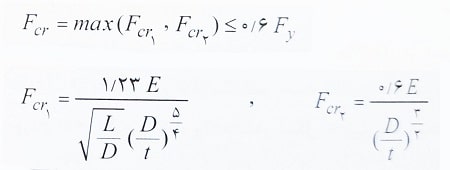 F_cr = max(F_cr۱ , F_cr۲) ≤ ۰/۶ F_y
F_cr۱ = ۱/۲۳ E / (√(L/D) (D/t)^(۵/۴)) , F_cr۲ = ۰/۶ E / (D/t)^(۳/۲)